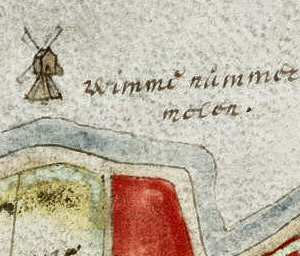 wimme nummer
molen.